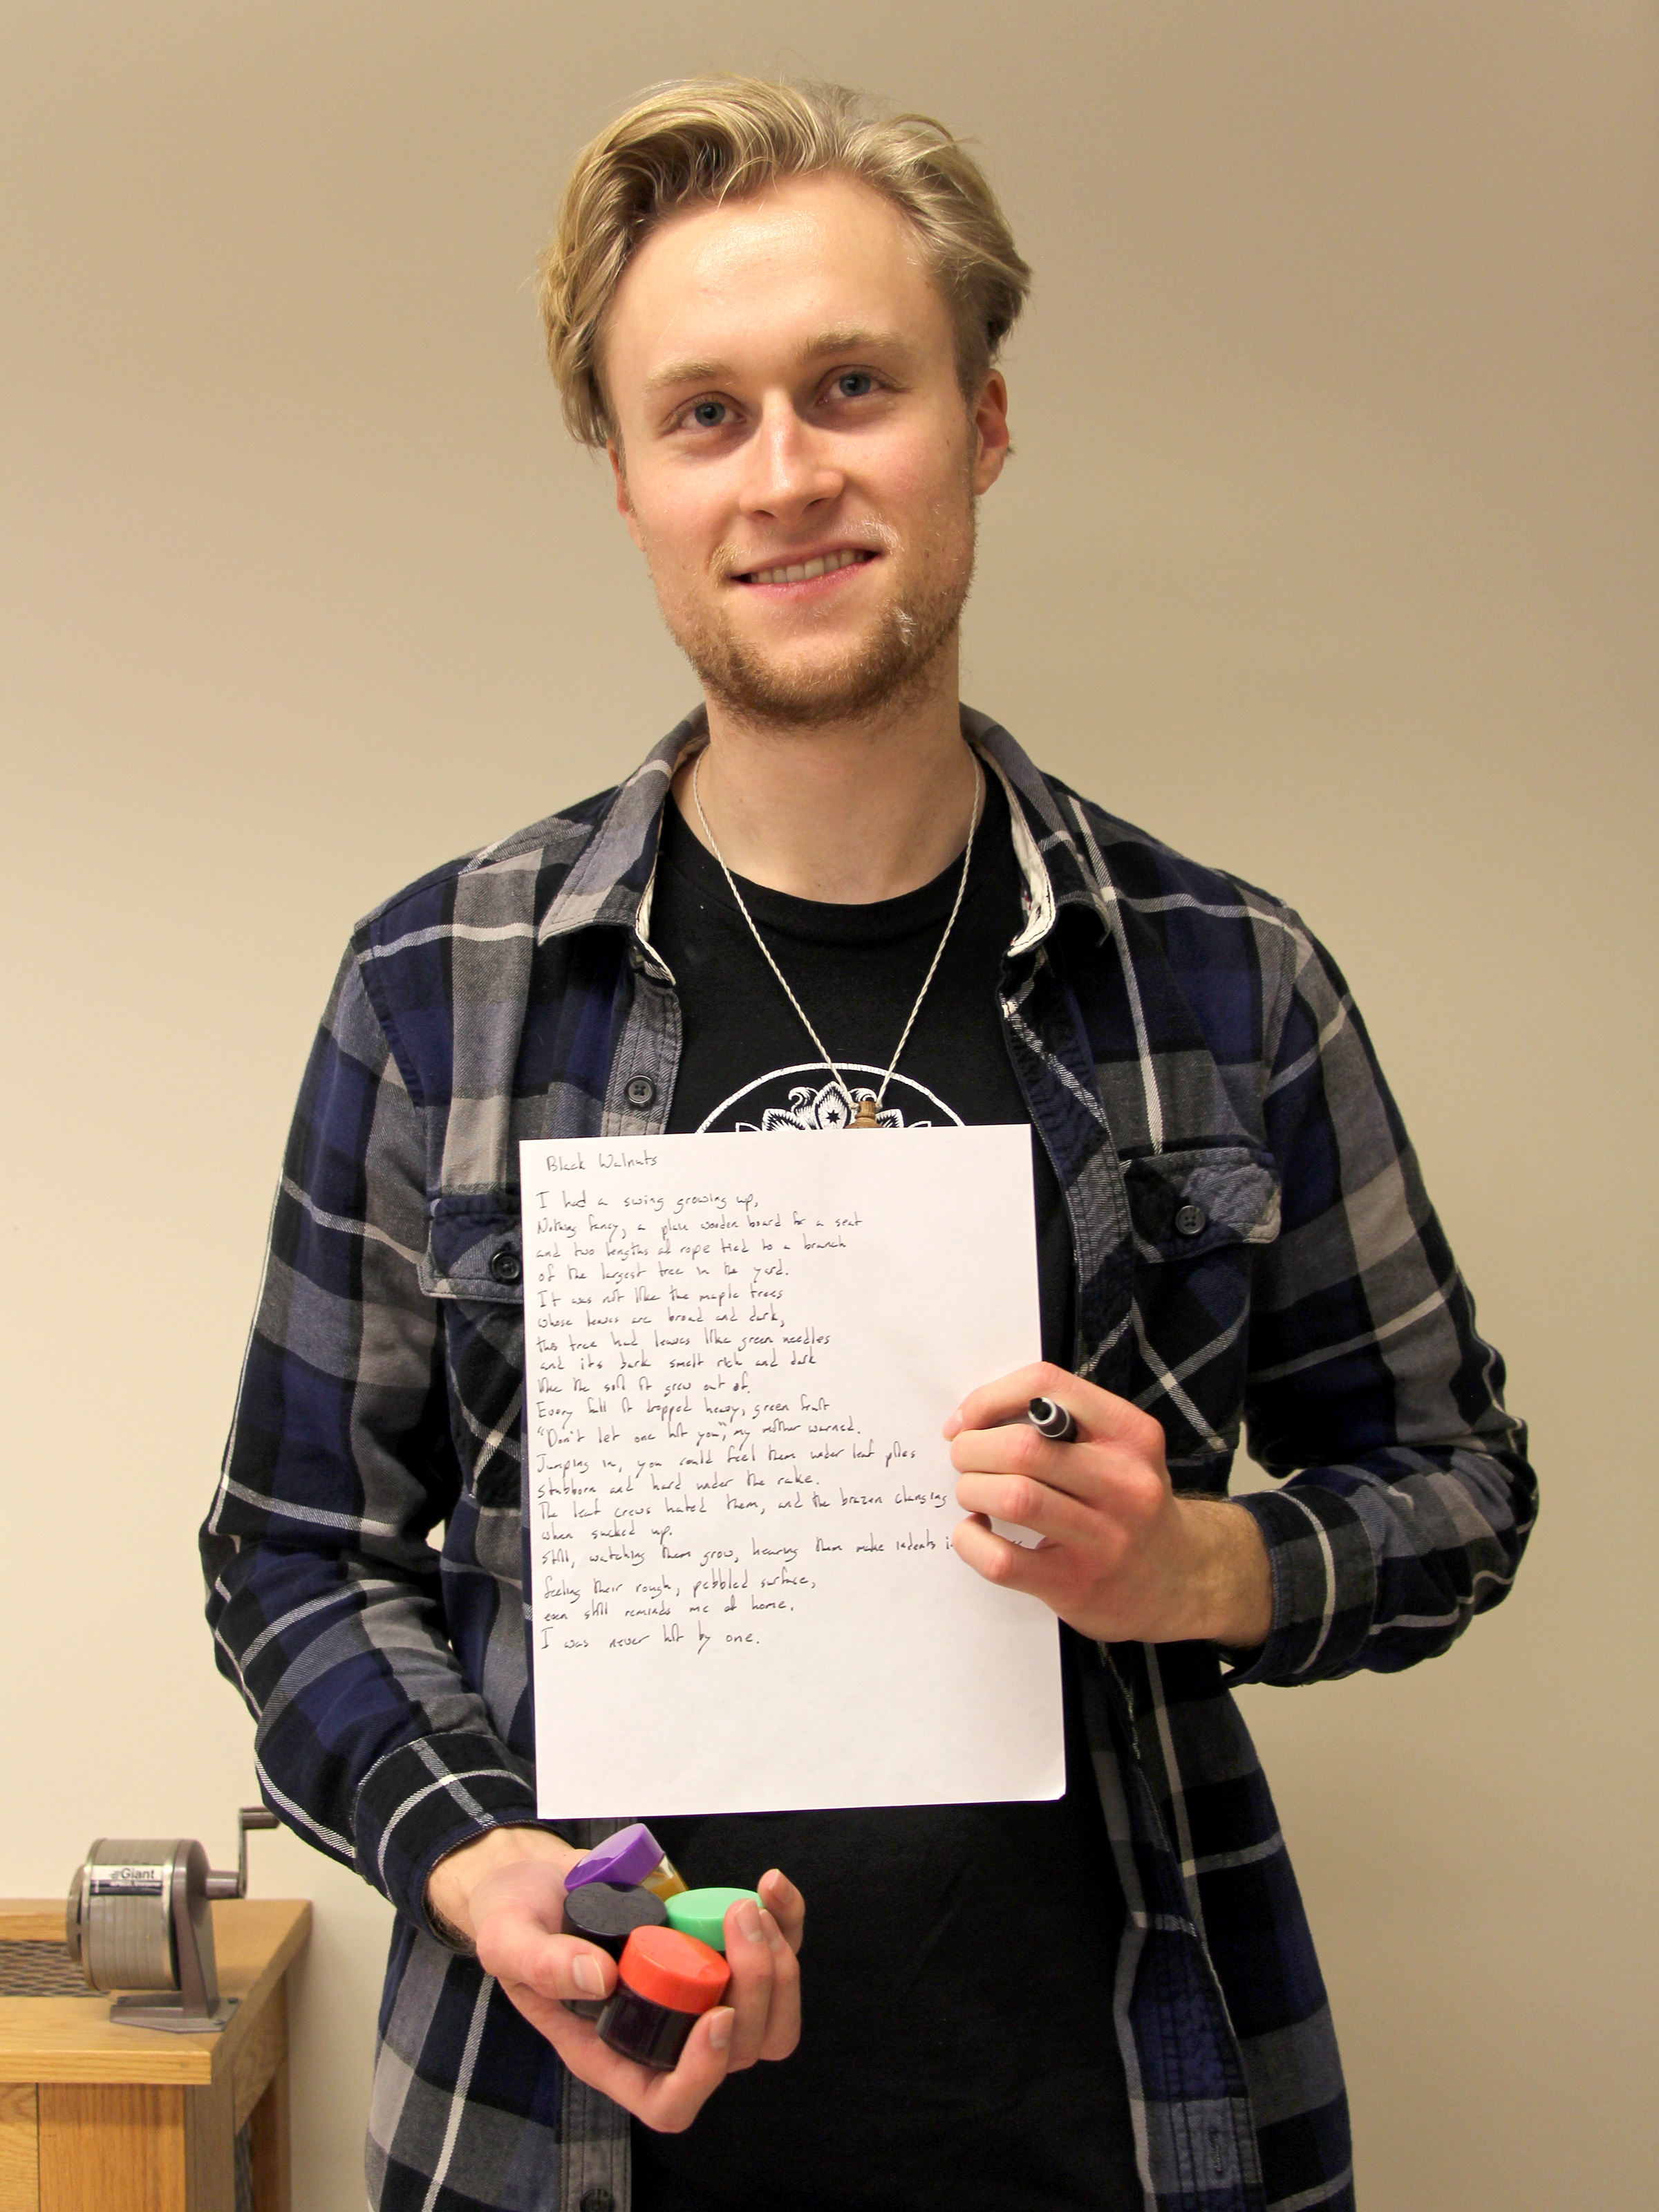 Black Walnuts
I had a swing growing up,
Nothing fancy, a plain wooden board for a seat
and two lengths of rope tied to a branch
of the largest tree in the yard.
It was not like the maple trees
whose leaves are broad and dark,
this tree had leaves like green needles
and its bark smelt rich and dark
like the soil it grew out of.
Every fall it dropped heavy, green fruit
"Don't let one hit you", my mother warned.
Jumping in, you could feel them under leaf piles
stubborn and hard under the rake.
The leaf crews hated them, and the brazen clanging
when sucked up.
Still, watching them grow, hearing them make indents
feeling their rough, pebbled surface,
even still reminds me of home.
I was never hit by one.
Giant